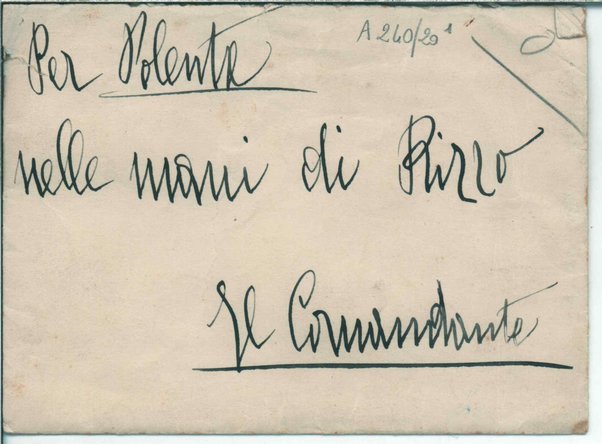 A 240/29 1
Per Polenta
nelle mani di Rizzo
Il Comandante